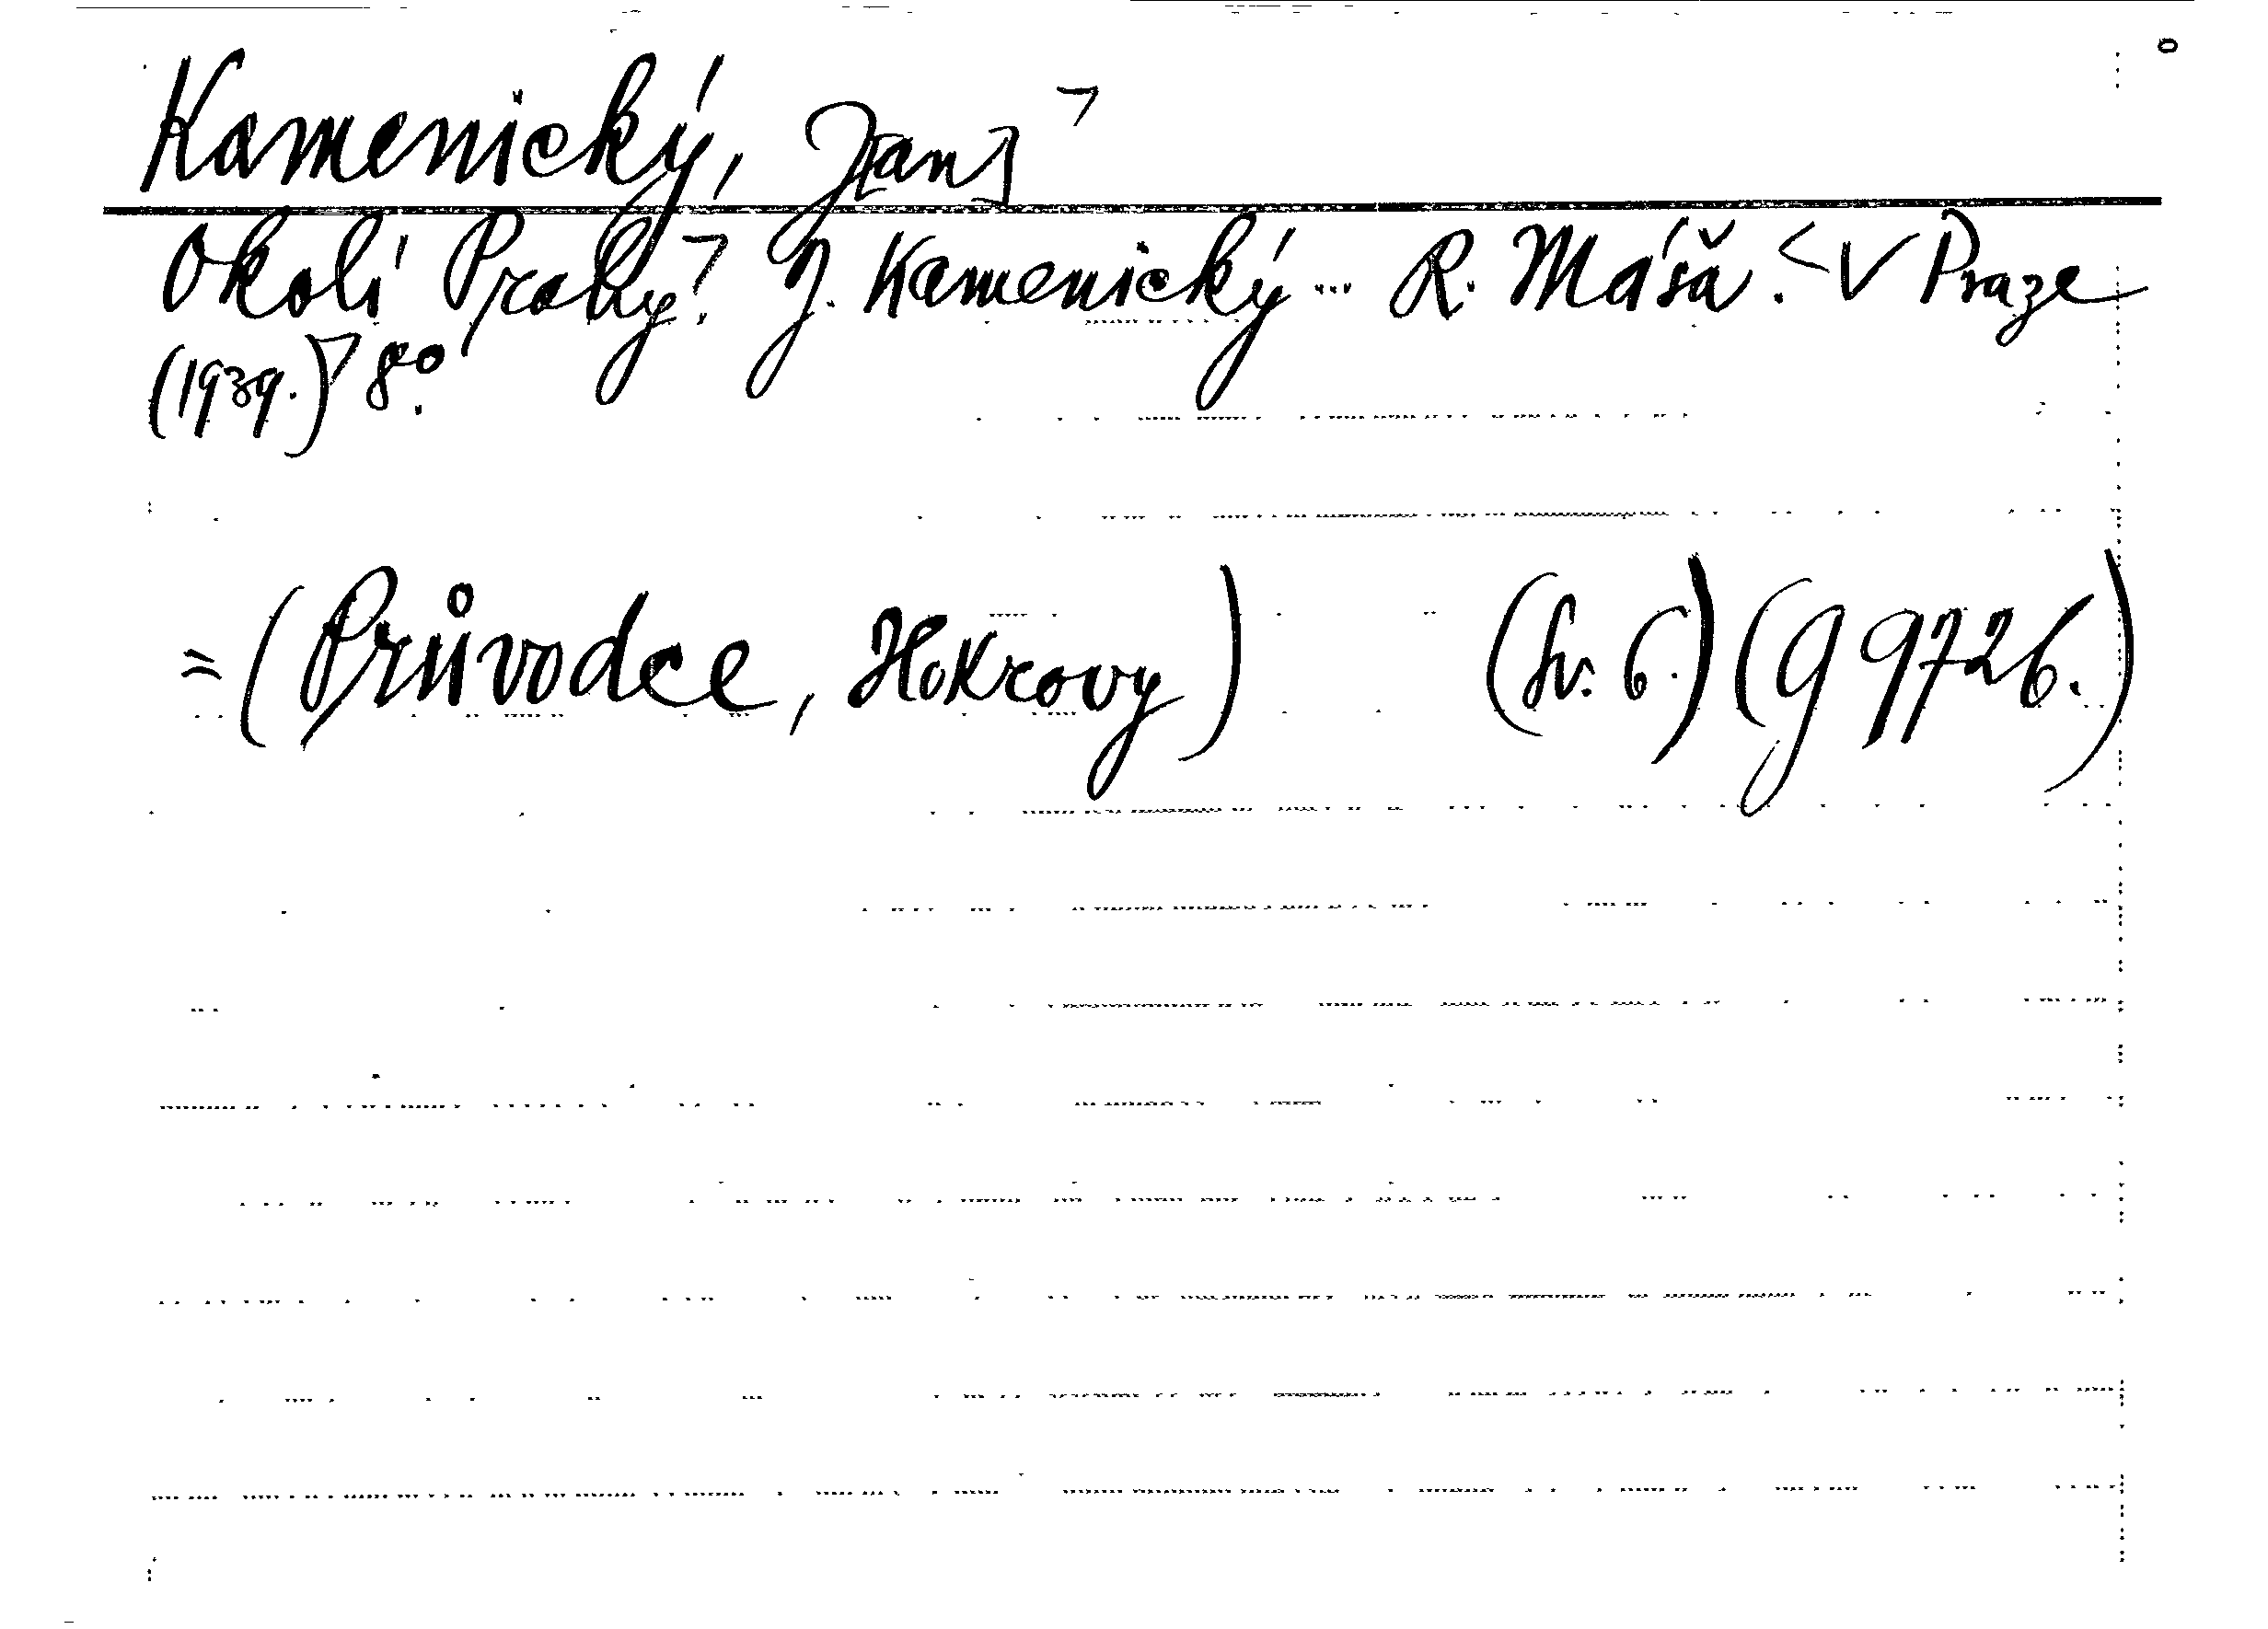 Kamenický, J[an]
Okolí Prahy. J. Kamenický ... R. Máša. V Praze
(1939.) 8°.
= (Průvodce, Hokrovy) (Sv. 6.) (g 9726.)